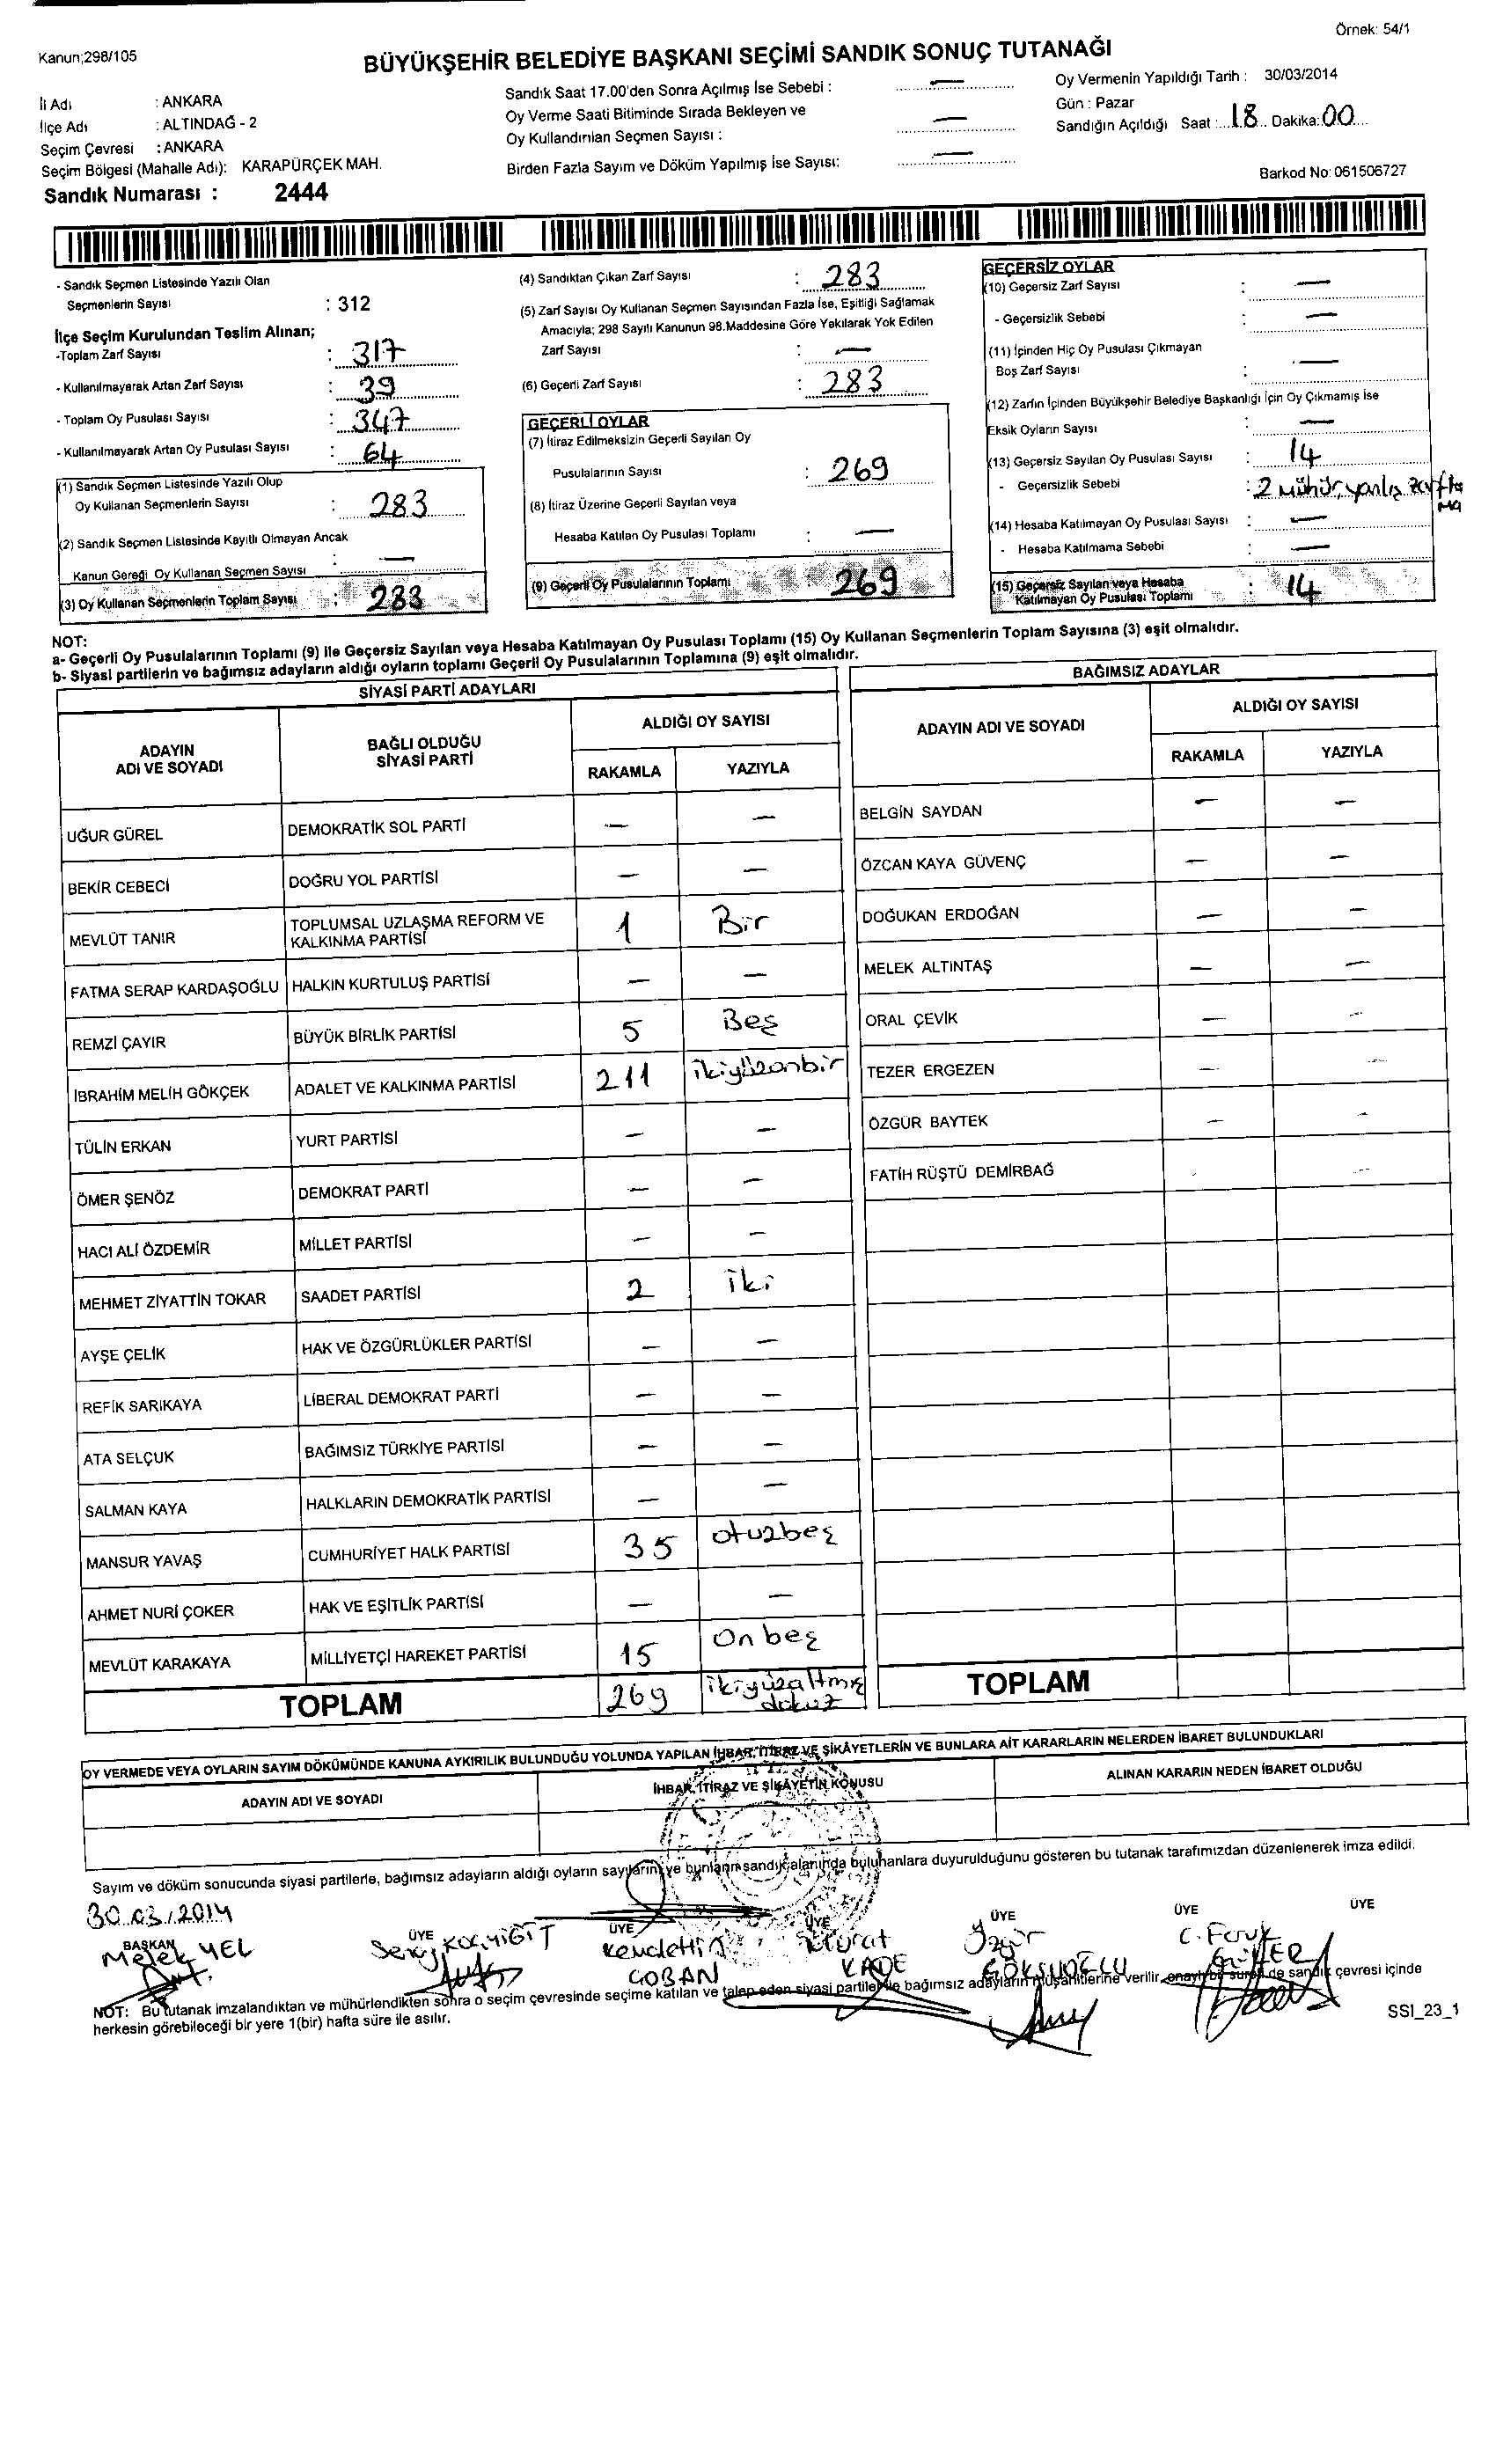 Örnek: 54/1
Kanun;298/105
BÜYÜKŞEHİR BELEDİYE BAŞKANI SEÇİMİ SANDIK SONUÇ TUTANAĞI
İli Adı : ANKARA
İlçe Adı : ALTINDAĞ - 2
Seçim Çevresi : ANKARA
Seçim Bölgesi (Mahalle Adı): KARAPÜRÇEK MAH.
Sandık Numarası : 2444
Sandık Saat 17.00'den Sonra Açılmış İse Sebebi : —
Oy Verme Saati Bitiminde Sırada Bekleyen ve
Oy Kullandırılan Seçmen Sayısı : —
Birden Fazla Sayım ve Döküm Yapılmış İse Sayısı: —
Oy Vermenin Yapıldığı Tarih : 30/03/2014
Gün : Pazar
Sandığın Açıldığı Saat : 18 Dakika: 00
Barkod No: 061506727
- Sandık Seçmen Listesinde Yazılı Olan
Seçmenlerin Sayısı : 312
İlçe Seçim Kurulundan Teslim Alınan;
-Toplam Zarf Sayısı : 317
- Kullanılmayarak Artan Zarf Sayısı : 39
- Toplam Oy Pusulası Sayısı : 347
- Kullanılmayarak Artan Oy Pusulası Sayısı : 64
(1) Sandık Seçmen Listesinde Yazılı Olup
Oy Kullanan Seçmenlerin Sayısı : 283
(2) Sandık Seçmen Listesinde Kayıtlı Olmayan Ancak
Kanun Gereği Oy Kullanan Seçmen Sayısı : —
(3) Oy Kullanan Seçmenlerin Toplam Sayısı : 283
(4) Sandıktan Çıkan Zarf Sayısı : 283
(5) Zarf Sayısı Oy Kullanan Seçmen Sayısından Fazla İse, Eşitliği Sağlamak
Amacıyla; 298 Sayılı Kanunun 98.Maddesine Göre Yakılarak Yok Edilen
Zarf Sayısı : —
(6) Geçerli Zarf Sayısı : 283
GEÇERLİ OYLAR
(7) İtiraz Edilmeksizin Geçerli Sayılan Oy
Pusulalarının Sayısı : 269
(8) İtiraz Üzerine Geçerli Sayılan veya
Hesaba Katılan Oy Pusulası Toplamı : —
(9) Geçerli Oy Pusulalarının Toplamı : 269
GEÇERSİZ OYLAR
(10) Geçersiz Zarf Sayısı : —
- Geçersizlik Sebebi : —
(11) İçinden Hiç Oy Pusulası Çıkmayan
Boş Zarf Sayısı : —
(12) Zarfın İçinden Büyükşehir Belediye Başkanlığı İçin Oy Çıkmamış İse
Eksik Oyların Sayısı : —
(13) Geçersiz Sayılan Oy Pusulası Sayısı : 14
- Geçersizlik Sebebi : 2 mühür, yanlış zarfla
ma
(14) Hesaba Katılmayan Oy Pusulası Sayısı : —
- Hesaba Katılmama Sebebi : —
(15) Geçersiz Sayılan veya Hesaba
Katılmayan Oy Pusulası Toplamı : 14
NOT:
a- Geçerli Oy Pusulalarının Toplamı (9) ile Geçersiz Sayılan veya Hesaba Katılmayan Oy Pusulası Toplamı (15) Oy Kullanan Seçmenlerin Toplam Sayısına (3) eşit olmalıdır.
b- Siyasi partilerin ve bağımsız adayların aldığı oyların toplamı Geçerli Oy Pusulalarının Toplamına (9) eşit olmalıdır.
SİYASİ PARTİ ADAYLARI
ADAYIN ADI VE SOYADI BAĞLI OLDUĞU SİYASİ PARTİ ALDIĞI OY SAYISI
RAKAMLA YAZIYLA
UĞUR GÜREL DEMOKRATİK SOL PARTİ — —
BEKİR CEBECİ DOĞRU YOL PARTİSİ — —
MEVLÜT TANIR TOPLUMSAL UZLAŞMA REFORM VE KALKINMA PARTİSİ 1 Bir
FATMA SERAP KARDAŞOĞLU HALKIN KURTULUŞ PARTİSİ — —
REMZİ ÇAYIR BÜYÜK BİRLİK PARTİSİ 5 Beş
İBRAHİM MELİH GÖKÇEK ADALET VE KALKINMA PARTİSİ 211 ikiyüzonbir
TÜLİN ERKAN YURT PARTİSİ — —
ÖMER ŞENÖZ DEMOKRAT PARTİ — —
HACI ALİ ÖZDEMİR MİLLET PARTİSİ — —
MEHMET ZİYATTİN TOKAR SAADET PARTİSİ 2 iki
AYŞE ÇELİK HAK VE ÖZGÜRLÜKLER PARTİSİ — —
REFİK SARIKAYA LİBERAL DEMOKRAT PARTİ — —
ATA SELÇUK BAĞIMSIZ TÜRKİYE PARTİSİ — —
SALMAN KAYA HALKLARIN DEMOKRATİK PARTİSİ — —
MANSUR YAVAŞ CUMHURİYET HALK PARTİSİ 35 otuzbeş
AHMET NURİ ÇOKER HAK VE EŞİTLİK PARTİSİ — —
MEVLÜT KARAKAYA MİLLİYETÇİ HAREKET PARTİSİ 15 Onbeş
TOPLAM 269 ikiyüzaltmış dokuz
BAĞIMSIZ ADAYLAR
ADAYIN ADI VE SOYADI ALDIĞI OY SAYISI
RAKAMLA YAZIYLA
BELGİN SAYDAN — —
ÖZCAN KAYA GÜVENÇ — —
DOĞUKAN ERDOĞAN — —
MELEK ALTINTAŞ — —
ORAL ÇEVİK — —
TEZER ERGEZEN — —
ÖZGÜR BAYTEK — —
FATİH RÜŞTÜ DEMİRBAĞ - —
TOPLAM
OY VERMEDE VEYA OYLARIN SAYIM DÖKÜMÜNDE KANUNA AYKIRILIK BULUNDUĞU YOLUNDA YAPILAN İHBAR, İTİRAZ VE ŞİKÂYETLERİN VE BUNLARA AİT KARARLARIN NELERDEN İBARET BULUNDUKLARI
ADAYIN ADI VE SOYADI İHBAR, İTİRAZ VE ŞİKÂYETİN KONUSU ALINAN KARARIN NEDEN İBARET OLDUĞU
Sayım ve döküm sonucunda siyasi partilerle, bağımsız adayların aldığı oyların sayılarını ve bunların sandık alanında bulunanlara duyurulduğunu gösteren bu tutanak tarafımızdan düzenlenerek imza edildi.
30.03.2014
BAŞKAN ÜYE ÜYE ÜYE ÜYE ÜYE ÜYE
Melek YEL
KOÇYİĞİT
ÇOBAN
Murat
Özgür GÖKSUOĞLU
C. Faruk
NOT: Bu tutanak imzalandıktan ve mühürlendikten sonra o seçim çevresinde seçime katılan ve talep eden siyasi partiler ile bağımsız adayların müşahitlerine verilir, onaylı bir sureti de sandık çevresi içinde
herkesin görebileceği bir yere 1(bir) hafta süre ile asılır.
SSI_23_1